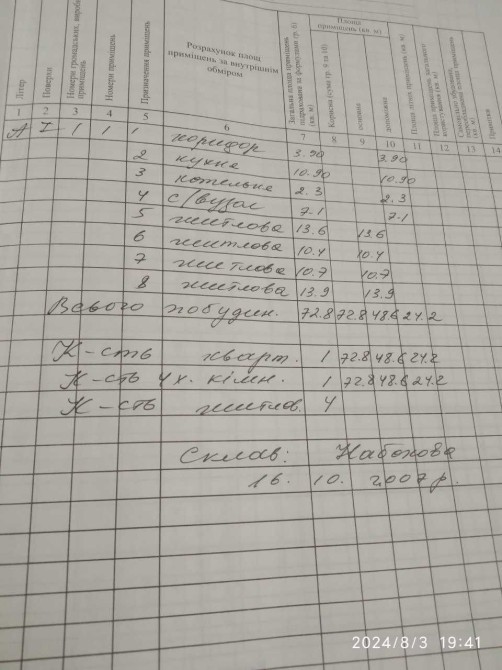 Літер
Поверхи
Номери громадських, виробн. приміщень
Номери приміщень
Призначення приміщень
Розрахунок площ
приміщень за внутрішнім
обміром
Загальна площа приміщень
підрахована за формулами (гр. 6)
(кв. м)
Площа
приміщень (кв. м)
Корисна (сума гр. 9 та 10)
основна
допоміжна
Площа літніх приміщень (кв. м)
Площа приміщень загального
користування (кв. м)
Примітки
1 2 3 4 5 6 7 8 9 10 11 12 13 14
А I 1 1 1 коридор 3.90 3.90
2 кухне 10.90 10.90
3 котельне 2.3 2.3
4 с/вузол 7.1 7.1
5 житлова 13.6 13.6
6 житлова 10.4 10.4
7 житлова 10.7 10.7
8 житлова 13.9 13.9
Всього по будин. 72.8 72.8 48.6 24.2
К-сть кварт. 1 72.8 48.6 24.2
К-сть 4х. кімн. 1 72.8 48.6 24.2
К-сть житлов. 4
Склав: Набокова
16. 10. 2007 р.
2024/8/3 19:41